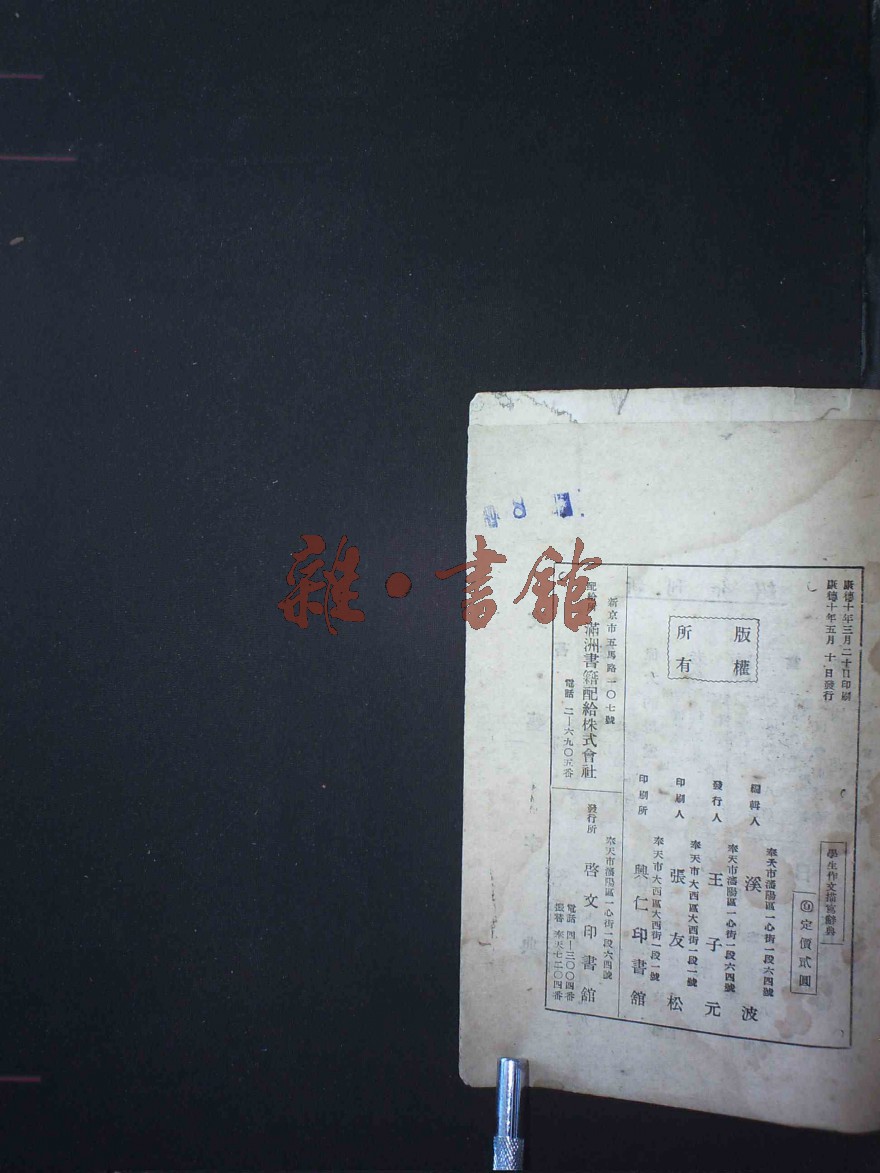 康德十年三月二十日印刷
康德十年五月十日發行
學生作文描寫辭典
定價貳圓
版權
所有
編輯人
奉天市瀋陽區一心街一段六四號
溪波
發行人
奉天市瀋陽區一心街一段六四號
王子元
印刷人
奉天市大西區大西街一段一號
張友松
印刷所
奉天市大西區大西街一段一號
興仁印書舘
新京市五馬路一〇七號
配給
滿洲書籍配給株式會社
電話 二—六九〇五番
發行所
奉天市瀋陽區一心街一段六四號
啓文印書舘
電話 四—三〇〇四番
振替 奉天七二〇四番
雜·書館